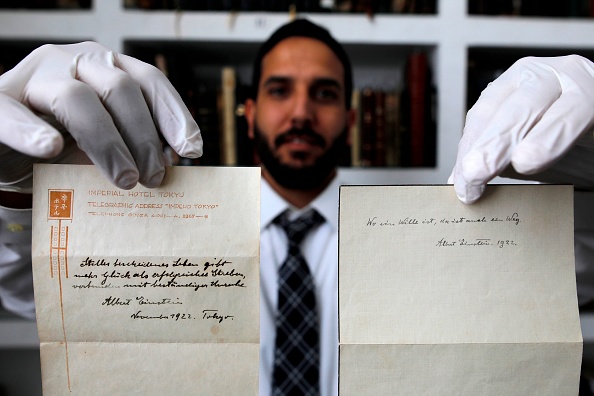 IMPERIAL HOTEL TOKYO
TELEGRAPHIC ADDRESS "IMPEHO TOKYO"
Stilles bescheidenes Leben gibt
mehr Glück als erfolgreiches Streben,
verbunden mit beständiger Unruhe.
Albert Einstein
November 1922. Tokyo.
Wo ein Wille ist, da ist auch ein Weg.
Albert Einstein, 1922.